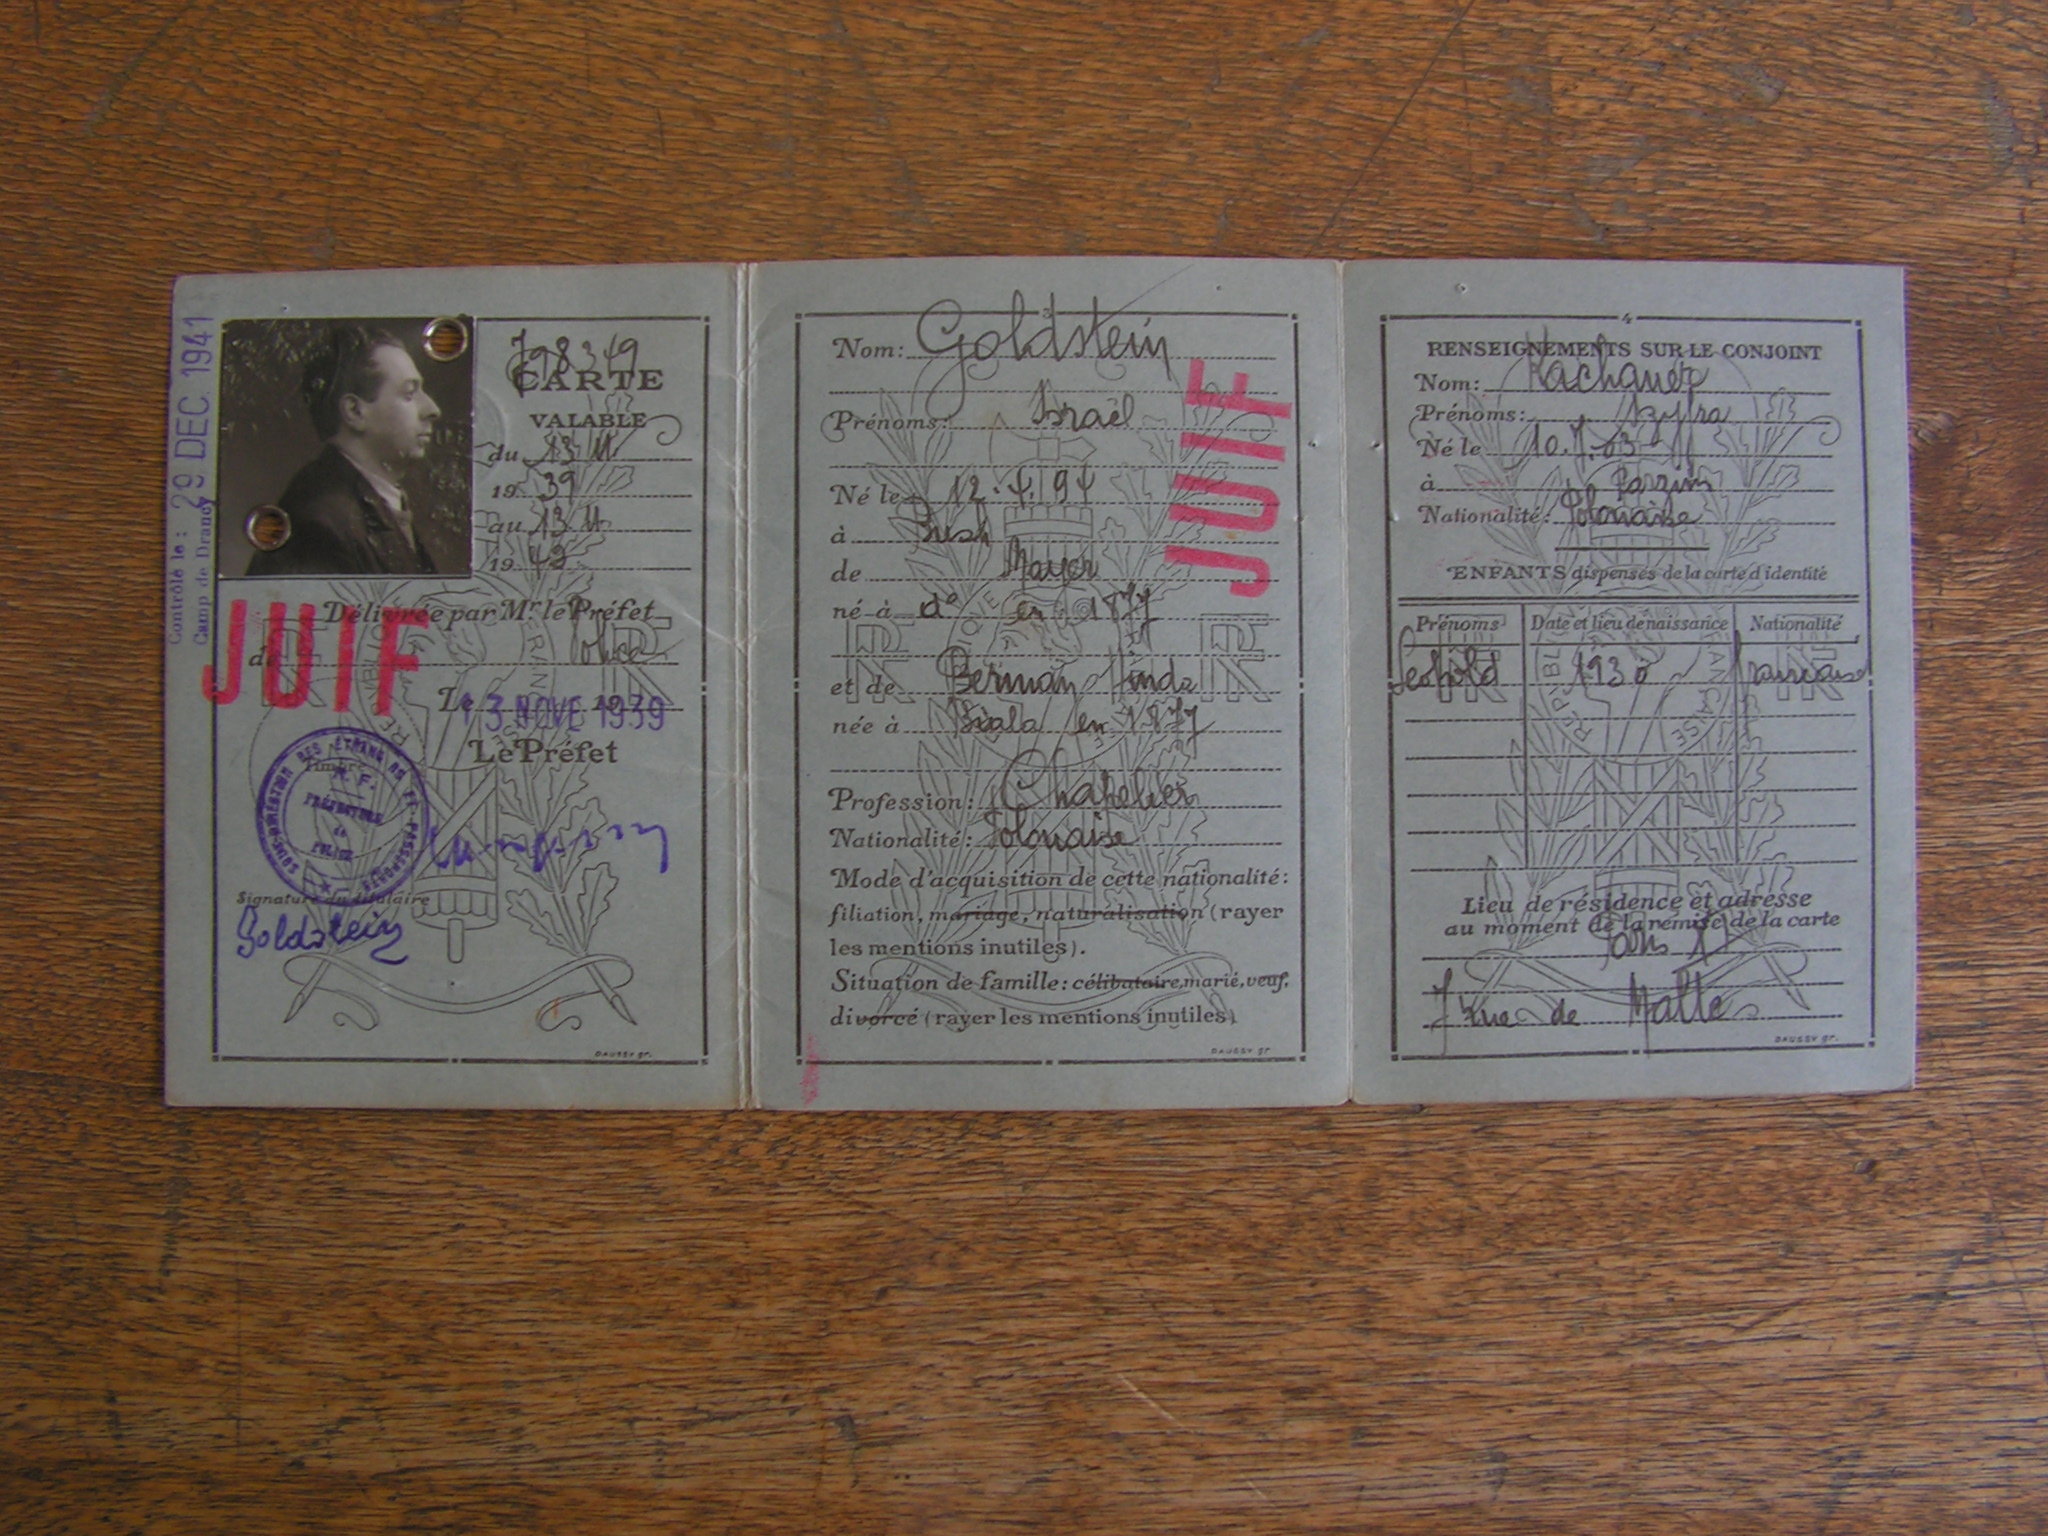 Contrôlé le : 29 DEC. 1941
Camp de Drancy
CARTE
VALABLE
du 13 11
19 39
au 13 11
19 42
Délivrée par Mr. le Préfet
de Police
Le 13 NOVE 1939
JUIF
Le Préfet
Timbre
SOUS-DIRECTION DES ÉTRANGERS ET PASSEPORTS
R. F.
PRÉFECTURE
de
POLICE
Signature du titulaire
Goldstein
DAUSSY gr.
3
Nom: Goldstein
Prénoms: Israël
JUIF
Né le 12.4.94
à
de Mayer
né à do en 1877
et de Berman Hinda
née à Biala en 1877
Profession: Chapelier
Nationalité: Polonaise
Mode d'acquisition de cette nationalité:
filiation, mariage, naturalisation (rayer
les mentions inutiles).
Situation de famille: célibataire, marié, veuf,
divorcé (rayer les mentions inutiles)
DAUSSY gr.
4
RENSEIGNEMENTS SUR LE CONJOINT
Nom:
Prénoms:
Né le 10.7.03
à
Nationalité: Polonaise
ENFANTS dispensés de la carte d'identité
Prénoms Date et lieu de naissance Nationalité
Léopold 1930 française
Lieu de résidence et adresse
au moment de la remise de la carte
Paris XI
7 Rue de Malte
DAUSSY gr.
RF
RF
RF
RF
RF
RF
RÉPUBLIQUE FRANÇAISE